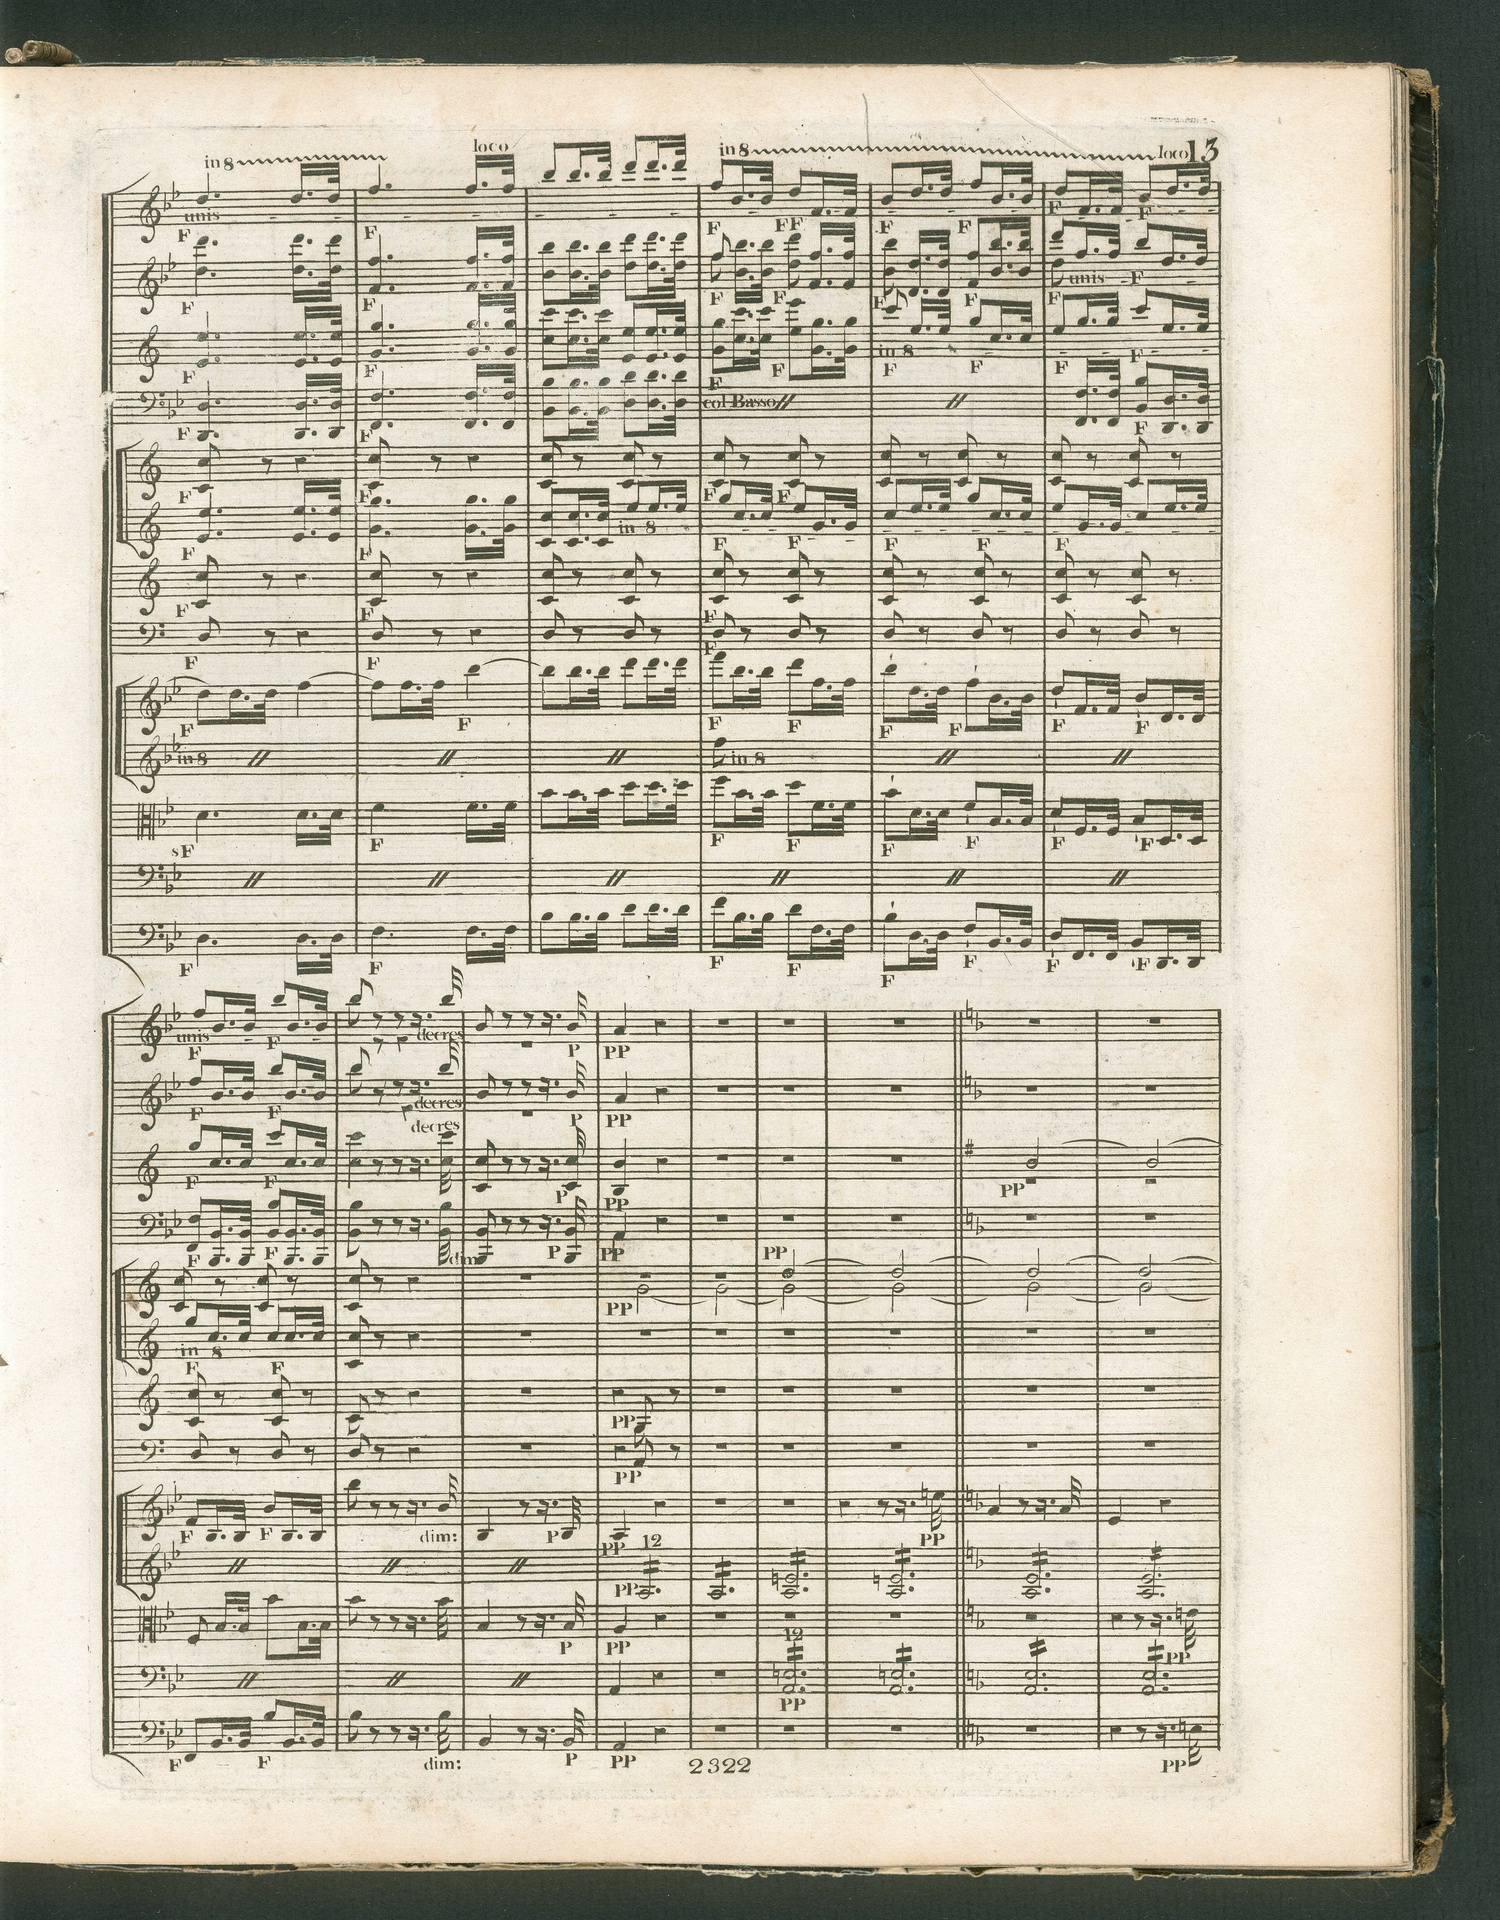 in 8 loco in 8 loco 13
unis
F F F FF F F F F
F F F F F unis F
F F F F in 8 F F F F
F F col Basso F
F F F F
F F in 8 F F F F F
F F F
F F F
F F F F F F F F
in 8 in 8
sF F F F F F F F
F F F F F F F F
unis F F decres P PP
F F decres P PP
decres
F F P PP PP
F F dim P PP PP
PP
in 8 F F
PP
PP
F F dim: P PP PP
12
PP
P PP 12 PP
PP
F F dim: P PP PP
2322